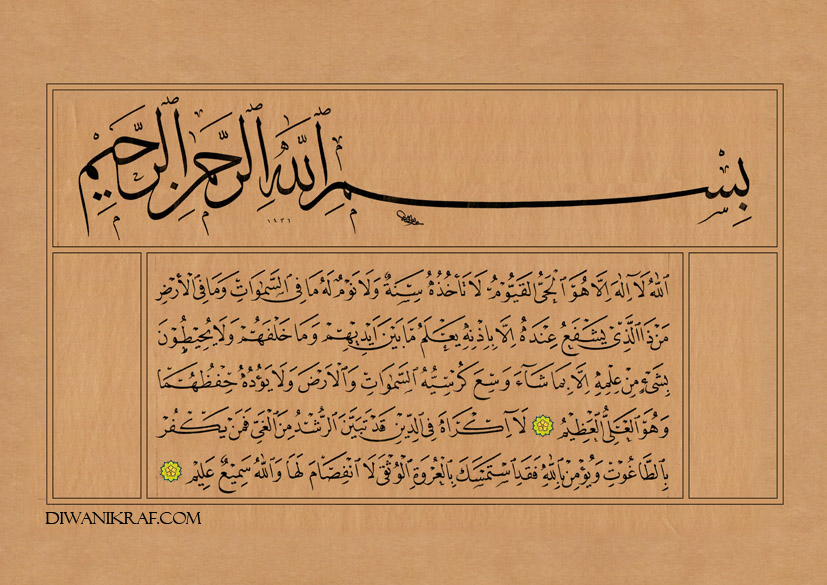 بِسْمِ ٱللَّهِ ٱلرَّحْمَٰنِ ٱلرَّحِيمِ
١٤٣١
اَللّٰهُ لَا اِلٰهَ اِلَّا هُوَ اَلْحَيُّ الْقَيُّومُ لَا تَأْخُذُهُ سِنَةٌ وَلَا نَوْمٌ لَهُ مَا فِي السَّمٰوَاتِ وَمَا فِي الْاَرْضِ
مَنْ ذَا الَّذِي يَشْفَعُ عِنْدَهُ اِلَّا بِاِذْنِهِ يَعْلَمُ مَا بَيْنَ اَيْدِيهِمْ وَمَا خَلْفَهُمْ وَلَا يُحِيطُونَ
بِشَيْءٍ مِنْ عِلْمِهِ اِلَّا بِمَا شَاءَ وَسِعَ كُرْسِيُّهُ السَّمٰوَاتِ وَالْاَرْضَ وَلَا يَؤُدُهُ حِفْظُهُمَا
وَهُوَ الْعَلِيُّ الْعَظِيمُ لَا اِكْرَاهَ فِي الدِّينِ قَدْ تَبَيَّنَ الرُّشْدُ مِنَ الْغَيِّ فَمَنْ يَكْفُرْ
بِالطَّاغُوتِ وَيُؤْمِنْ بِاللّٰهِ فَقَدِ اسْتَمْسَكَ بِالْعُرْوَةِ الْوُثْقٰى لَا انْفِصَامَ لَهَا وَاللّٰهُ سَمِيعٌ عَلِيمٌ
DIWANIKRAF.COM